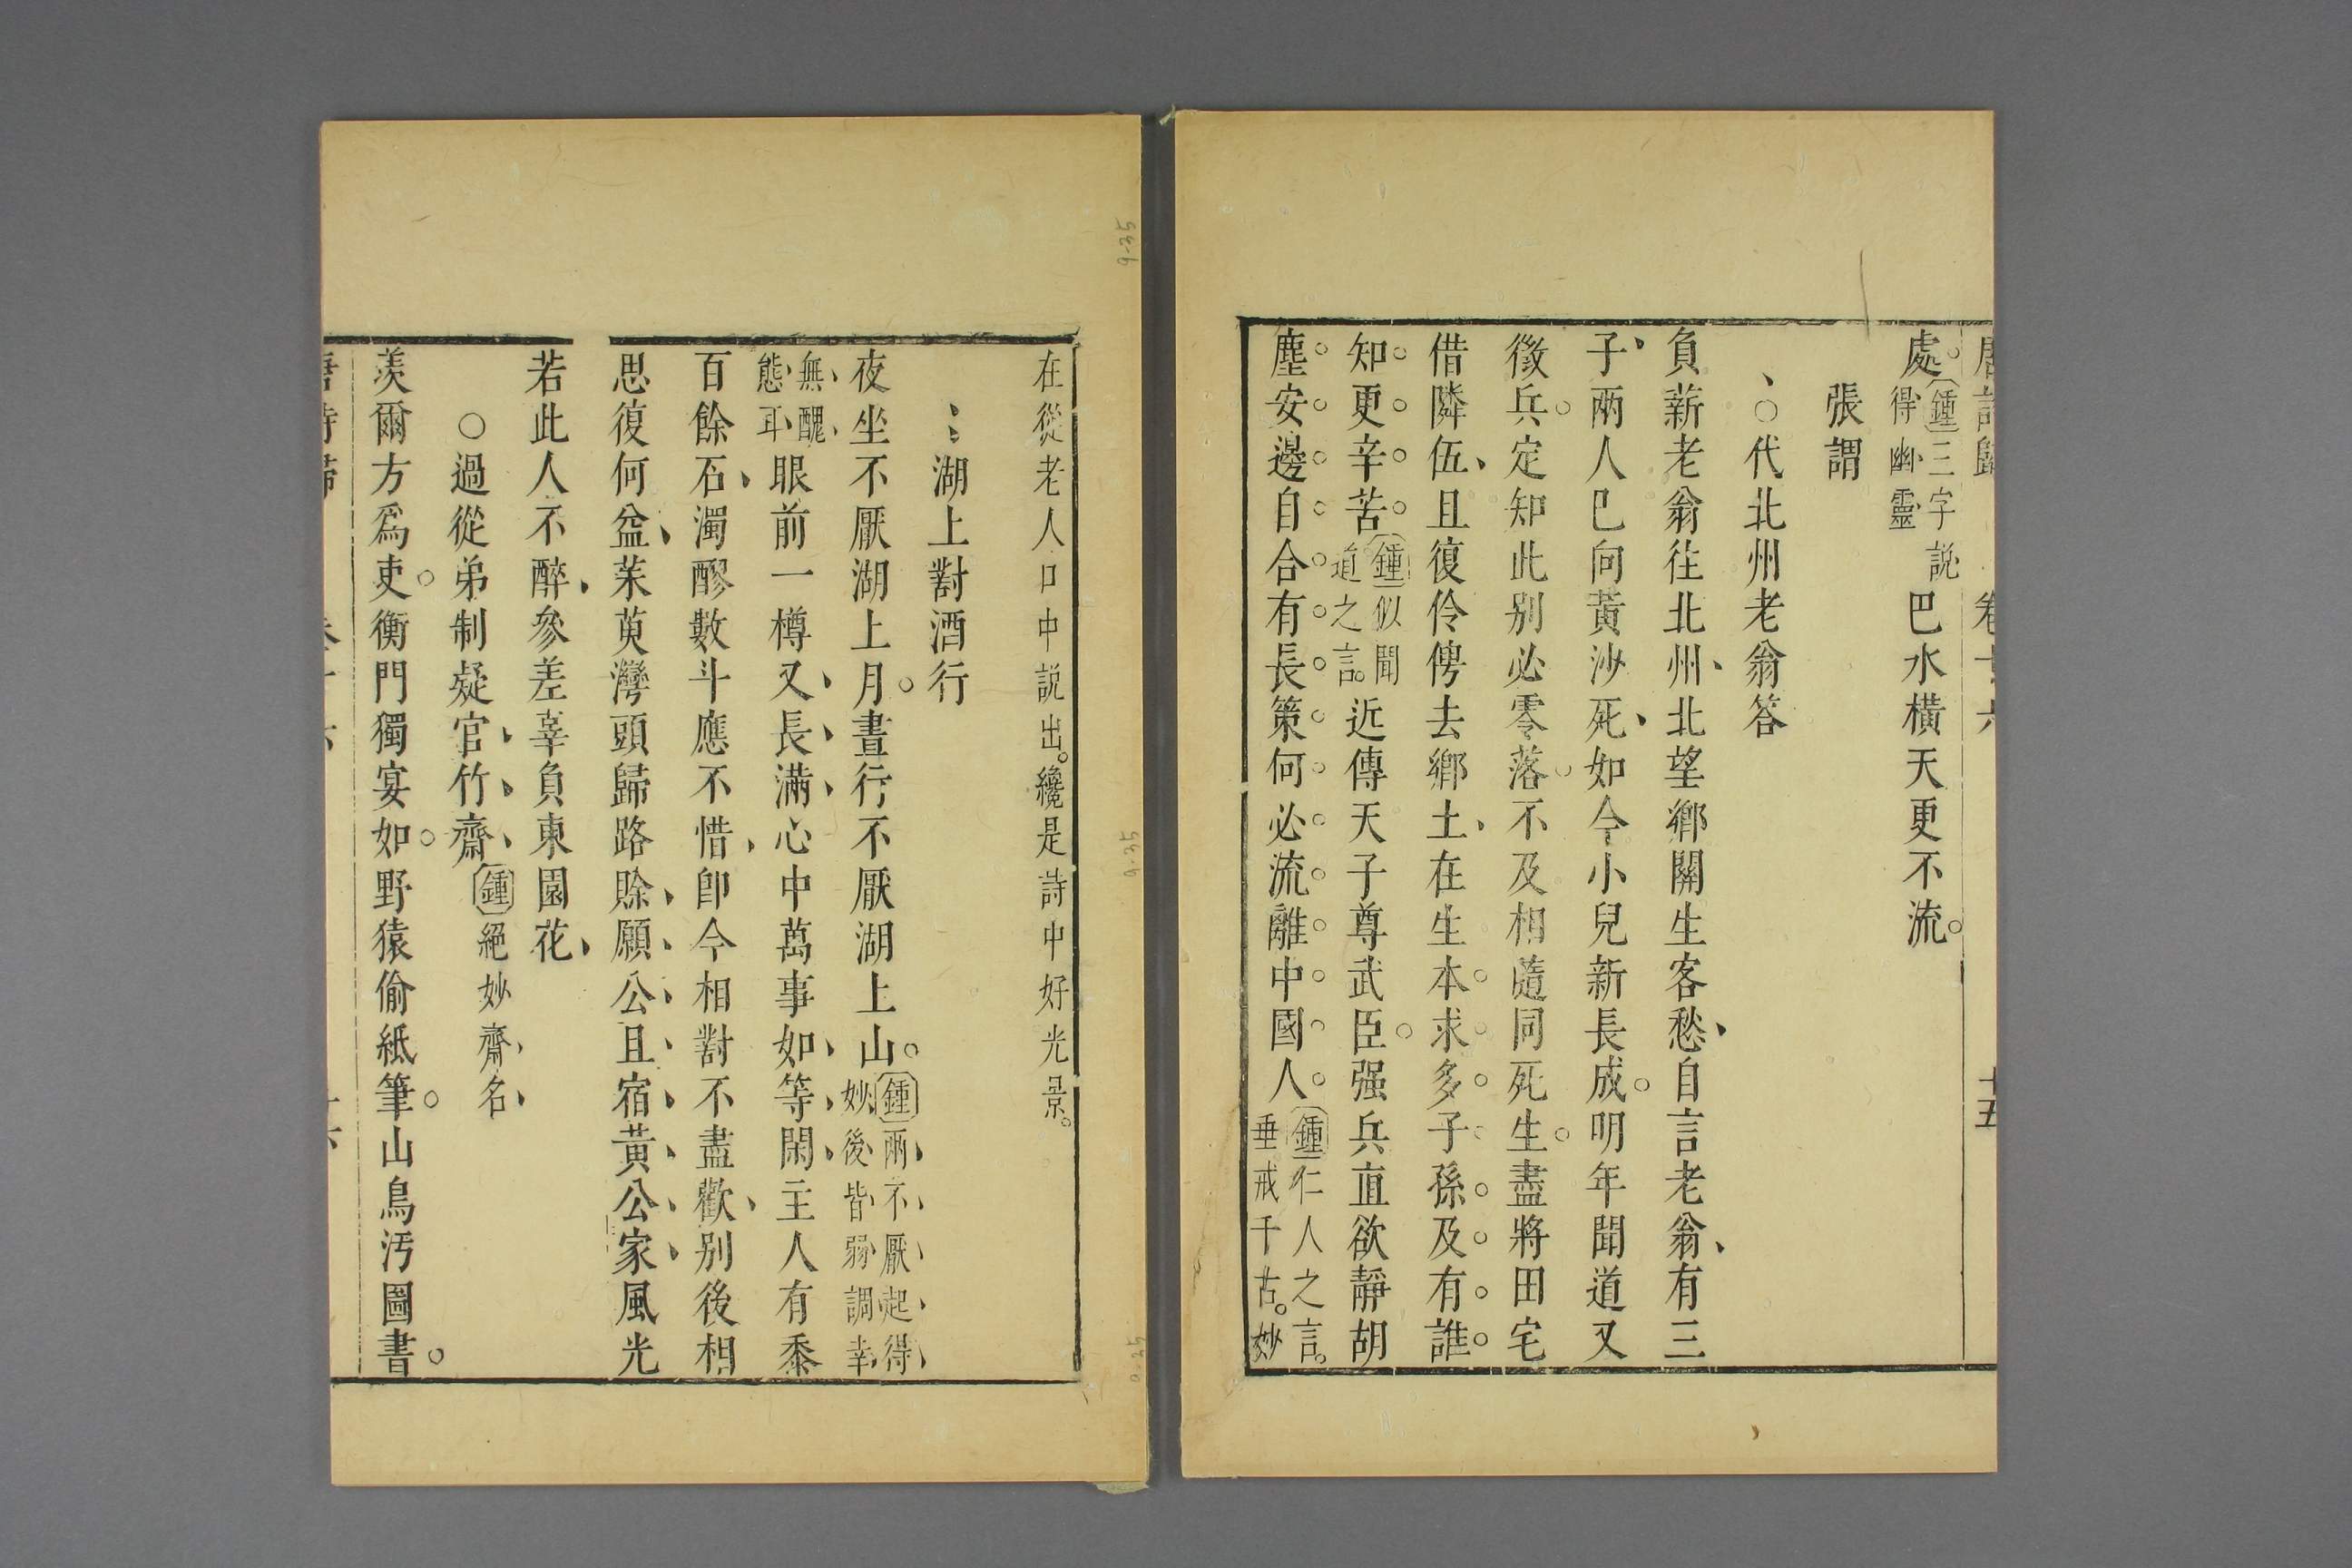 唐詩歸 卷十六 十五
處。鍾三字說得幽靈巴水橫天更不流。
張謂
、○代北州老翁答
負薪老翁往北州、北望鄉關生客愁、自言老翁、有三
子、兩人已向黃沙死、如今小兒新長成。明年聞道又
徵兵。定知此別必零落。不及相隨同死生。盡將田宅
借隣伍、且復伶俜去鄉土、在生本求多子孫及有誰
知更辛苦鍾似聞道之言。近傳天子尊武臣。强兵直欲靜胡
塵安邊自合有長策何必流離中國人鍾仁人之言。垂戒千古。妙
在從老人口中說出。纔是詩中好光景。
、、湖上對酒行
夜坐不厭湖上月。晝行不厭湖上山。鍾兩不厭起得妙後皆弱調幸
無醜態耳眼前一樽又長滿心中萬事如等閑主人有黍
百餘石、濁醪數斗應不惜、卽今相對不盡歡、別後相
思復何益、茱萸灣頭歸路賒、願公且宿黃公家風光
若此人不醉、參差辜負東園花、
○過從弟制疑官竹齋鍾絕妙齋名
羨爾方爲吏。衡門獨宴如。野猿偷紙筆。山鳥汚圖書。
唐詩歸 卷十六 十六
9-35
9-35
9-35